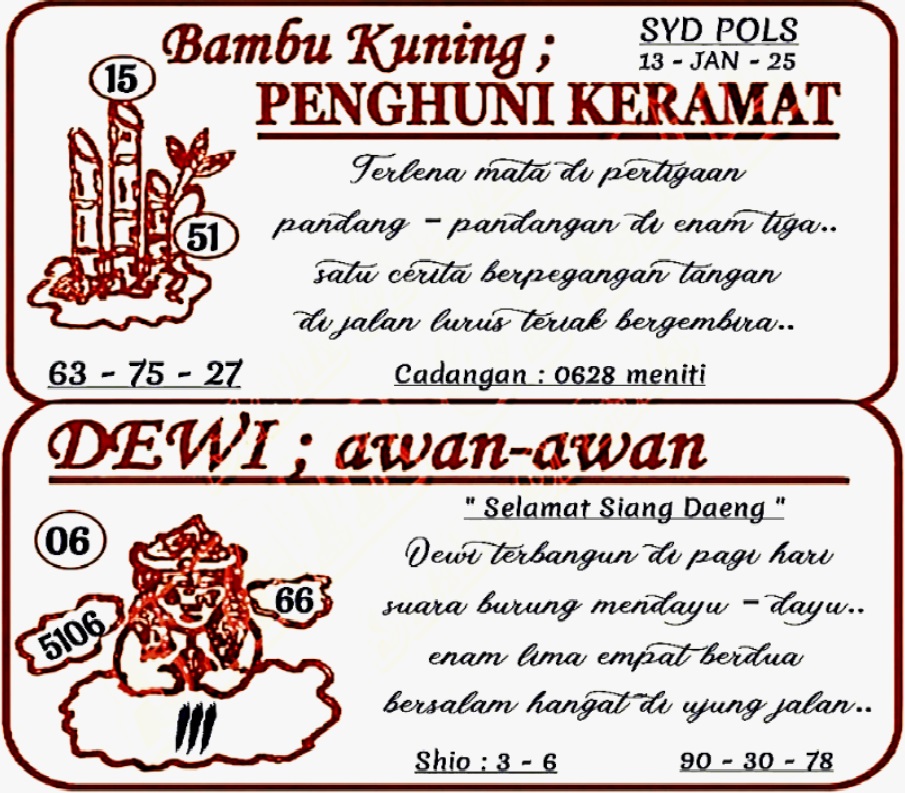 Bambu Kuning ;
SYD POLS
13 - JAN - 25
PENGHUNI KERAMAT
15
51
Terlena mata di pertigaan
pandang - pandangan di enam tiga..
satu cerita berpegangan tangan
di jalan lurus teriak bergembira..
63 - 75 - 27
Cadangan : 0628 meniti
DEWI ; awan-awan
" Selamat Siang Daeng "
06
66
5106
Dewi terbangun di pagi hari
suara burung mendayu - dayu..
enam lima empat berdua
bersalam hangat di ujung jalan..
Shio : 3 - 6
90 - 30 - 78